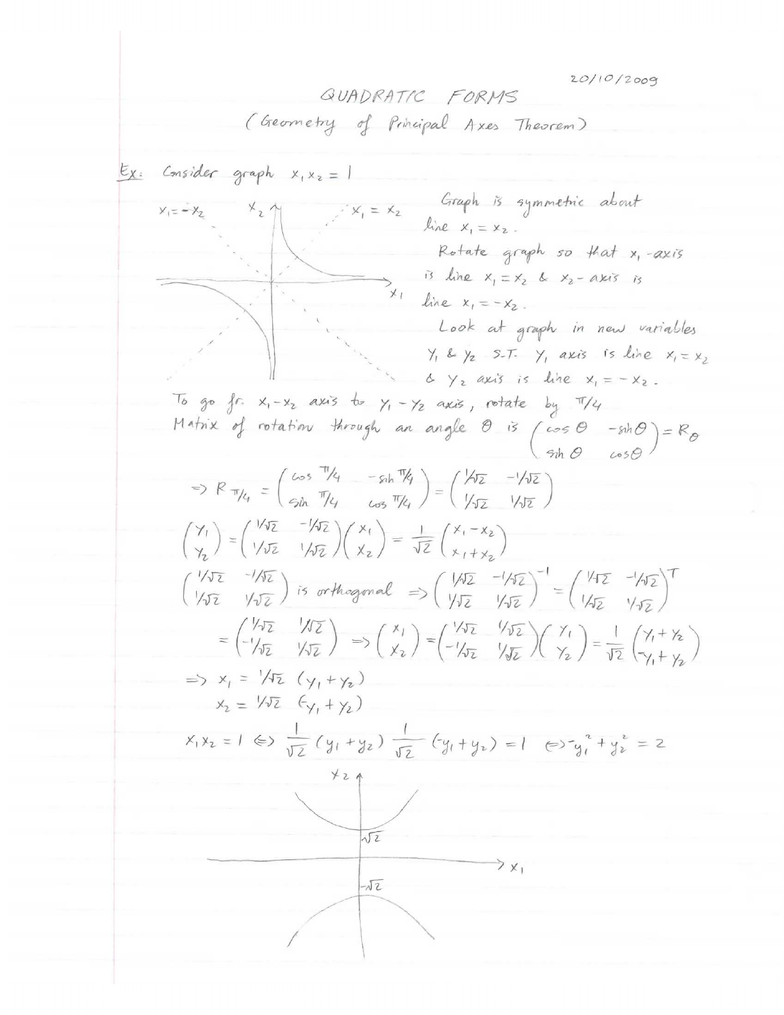 20/10/2009
QUADRATIC FORMS
(Geometry of Principal Axes Theorem)
Ex: Consider graph x₁x₂ = 1
x₁=-x₂ x₂ x₁ = x₂
x₁
Graph is symmetric about
line x₁ = x₂.
Rotate graph so that x₁-axis
is line x₁ = x₂ & x₂-axis is
line x₁ = -x₂.
Look at graph in new variables
y₁ & y₂ S.T. y₁ axis is line x₁ = x₂
& y₂ axis is line x₁ = -x₂.
To go fr. x₁-x₂ axis to y₁-y₂ axis, rotate by π/4
Matrix of rotation through an angle θ is (cos θ -sin θ; sin θ cos θ) = R_θ
=> R_π/4 = (cos π/4 -sin π/4; sin π/4 cos π/4) = (1/√2 -1/√2; 1/√2 1/√2)
(y₁; y₂) = (1/√2 -1/√2; 1/√2 1/√2)(x₁; x₂) = 1/√2 (x₁-x₂; x₁+x₂)
(1/√2 -1/√2; 1/√2 1/√2) is orthogonal => (1/√2 -1/√2; 1/√2 1/√2)⁻¹ = (1/√2 -1/√2; 1/√2 1/√2)ᵀ
= (1/√2 1/√2; -1/√2 1/√2) => (x₁; x₂) = (1/√2 1/√2; -1/√2 1/√2)(y₁; y₂) = 1/√2 (y₁+y₂; -y₁+y₂)
=> x₁ = 1/√2 (y₁+y₂)
x₂ = 1/√2 (-y₁+y₂)
x₁x₂ = 1 <=> 1/√2 (y₁+y₂) 1/√2 (-y₁+y₂) = 1 <=> -y₁² + y₂² = 2
x₂
√2
x₁
-√2